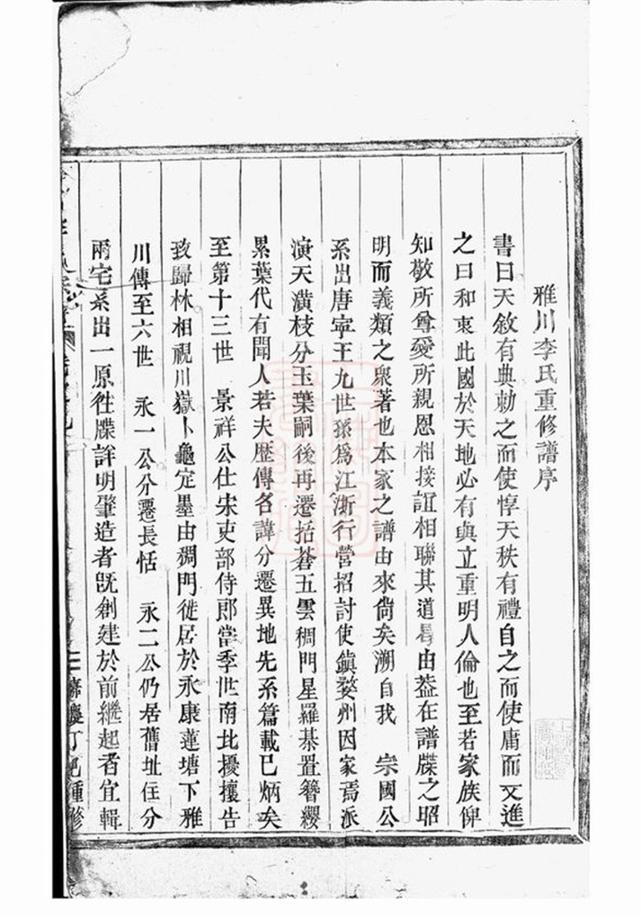 雅川李氏重修譜序
書曰天敘有典勅之而使惇天秩有禮自之而使庸而又進
之曰和衷此國於天地必有與立重明人倫也至若家族俾
知敬所尊愛所親恩相接誼相聯其道曷由葢在譜牒之昭
明而義類之衆著也本家之譜由來尚矣溯自我 崇國公
系出唐寧王九世孫爲江浙行營招討使鎮婺州因家焉派
演天潢枝分玉葉嗣後再遷括蒼五雲稠門星羅棊置簪纓
累葉代有聞人若夫歷傳各諱分遷異地先系篇載已炳矣
至第十三世 景祥公仕宋吏部侍郎當季世南北擾攘告
致歸林相視川嶽卜龜定墨由稠門徙居於永康蓮塘下雅
川傳至六世 永一公分遷長恬 永二公仍居舊址任分
兩宅系出一原徃牒詳明肇造者旣創建於前繼起者宜輯
丁巳重修